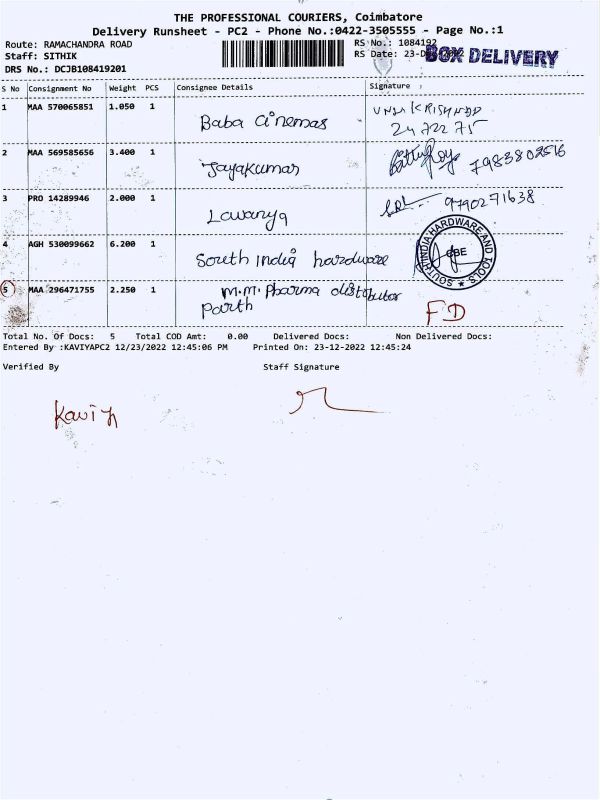 THE PROFESSIONAL COURIERS, Coimbatore
Delivery Runsheet - PC2 - Phone No.:0422-3505555 - Page No.:1
Route: RAMACHANDRA ROAD
Staff: SITHIK
DRS No.: DCJB108419201
RS No.: 1084192
RS Date: 23-
BOX DELIVERY
S No Consignment No Weight PCS Consignee Details Signature
1 MAA 570065851 1.050 1 Baba Cinemas
2472275
2 MAA 569585656 3.400 1 Jayakumar
3 PRO 14289946 2.000 1 Lavanya 9790271638
4 AGH 530099662 6.200 1 South india hardware
SOUTH INDIA HARDWARE AND TOOLS
CBE
5 MAA 296471755 2.250 1 M.M. Pharma distributor
Parth
FD
Total No. Of Docs: 5 Total COD Amt: 0.00 Delivered Docs: Non Delivered Docs:
Entered By :KAVIYAPC2 12/23/2022 12:45:06 PM Printed On: 23-12-2022 12:45:24
Verified By Staff Signature